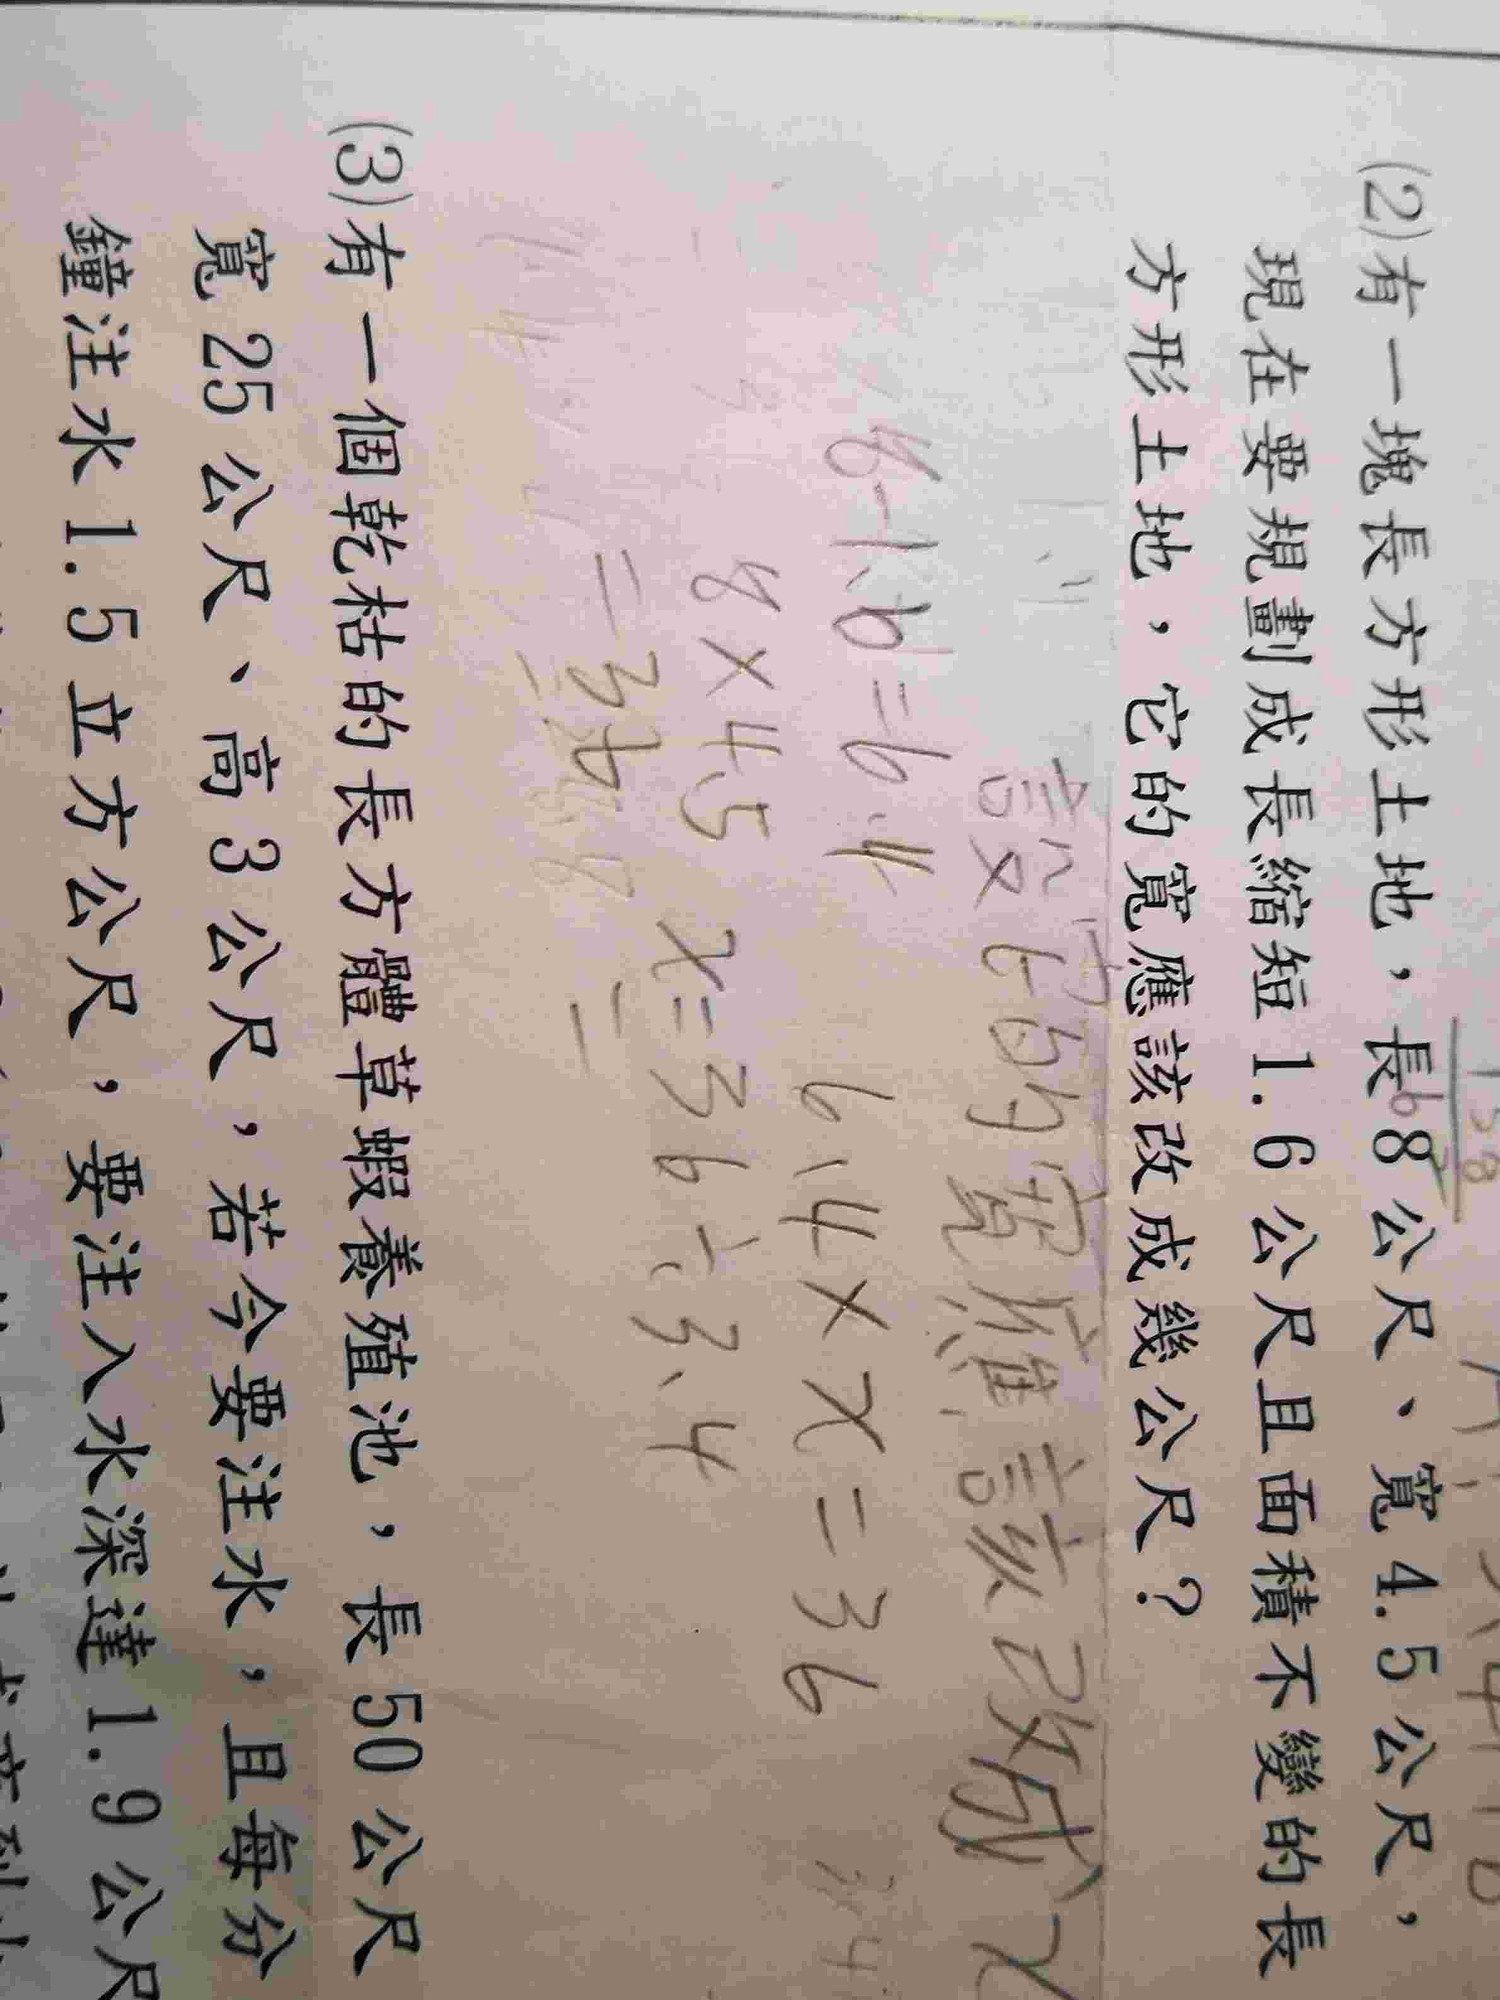 (2)有一塊長方形土地，長8公尺、寬4.5公尺，
現在要規劃成長縮短1.6公尺且面積不變的長
方形土地，它的寬應該改成幾公尺？
設它的寬應該改成x
8-1.6=6.4
6.4×x=36
8×4.5
=36
x=36÷3.4
(3)有一個乾枯的長方體草蝦養殖池，長50公尺
寬25公尺、高3公尺，若今要注水，且每分
鐘注水1.5立方公尺，要注入水深達1.9公尺